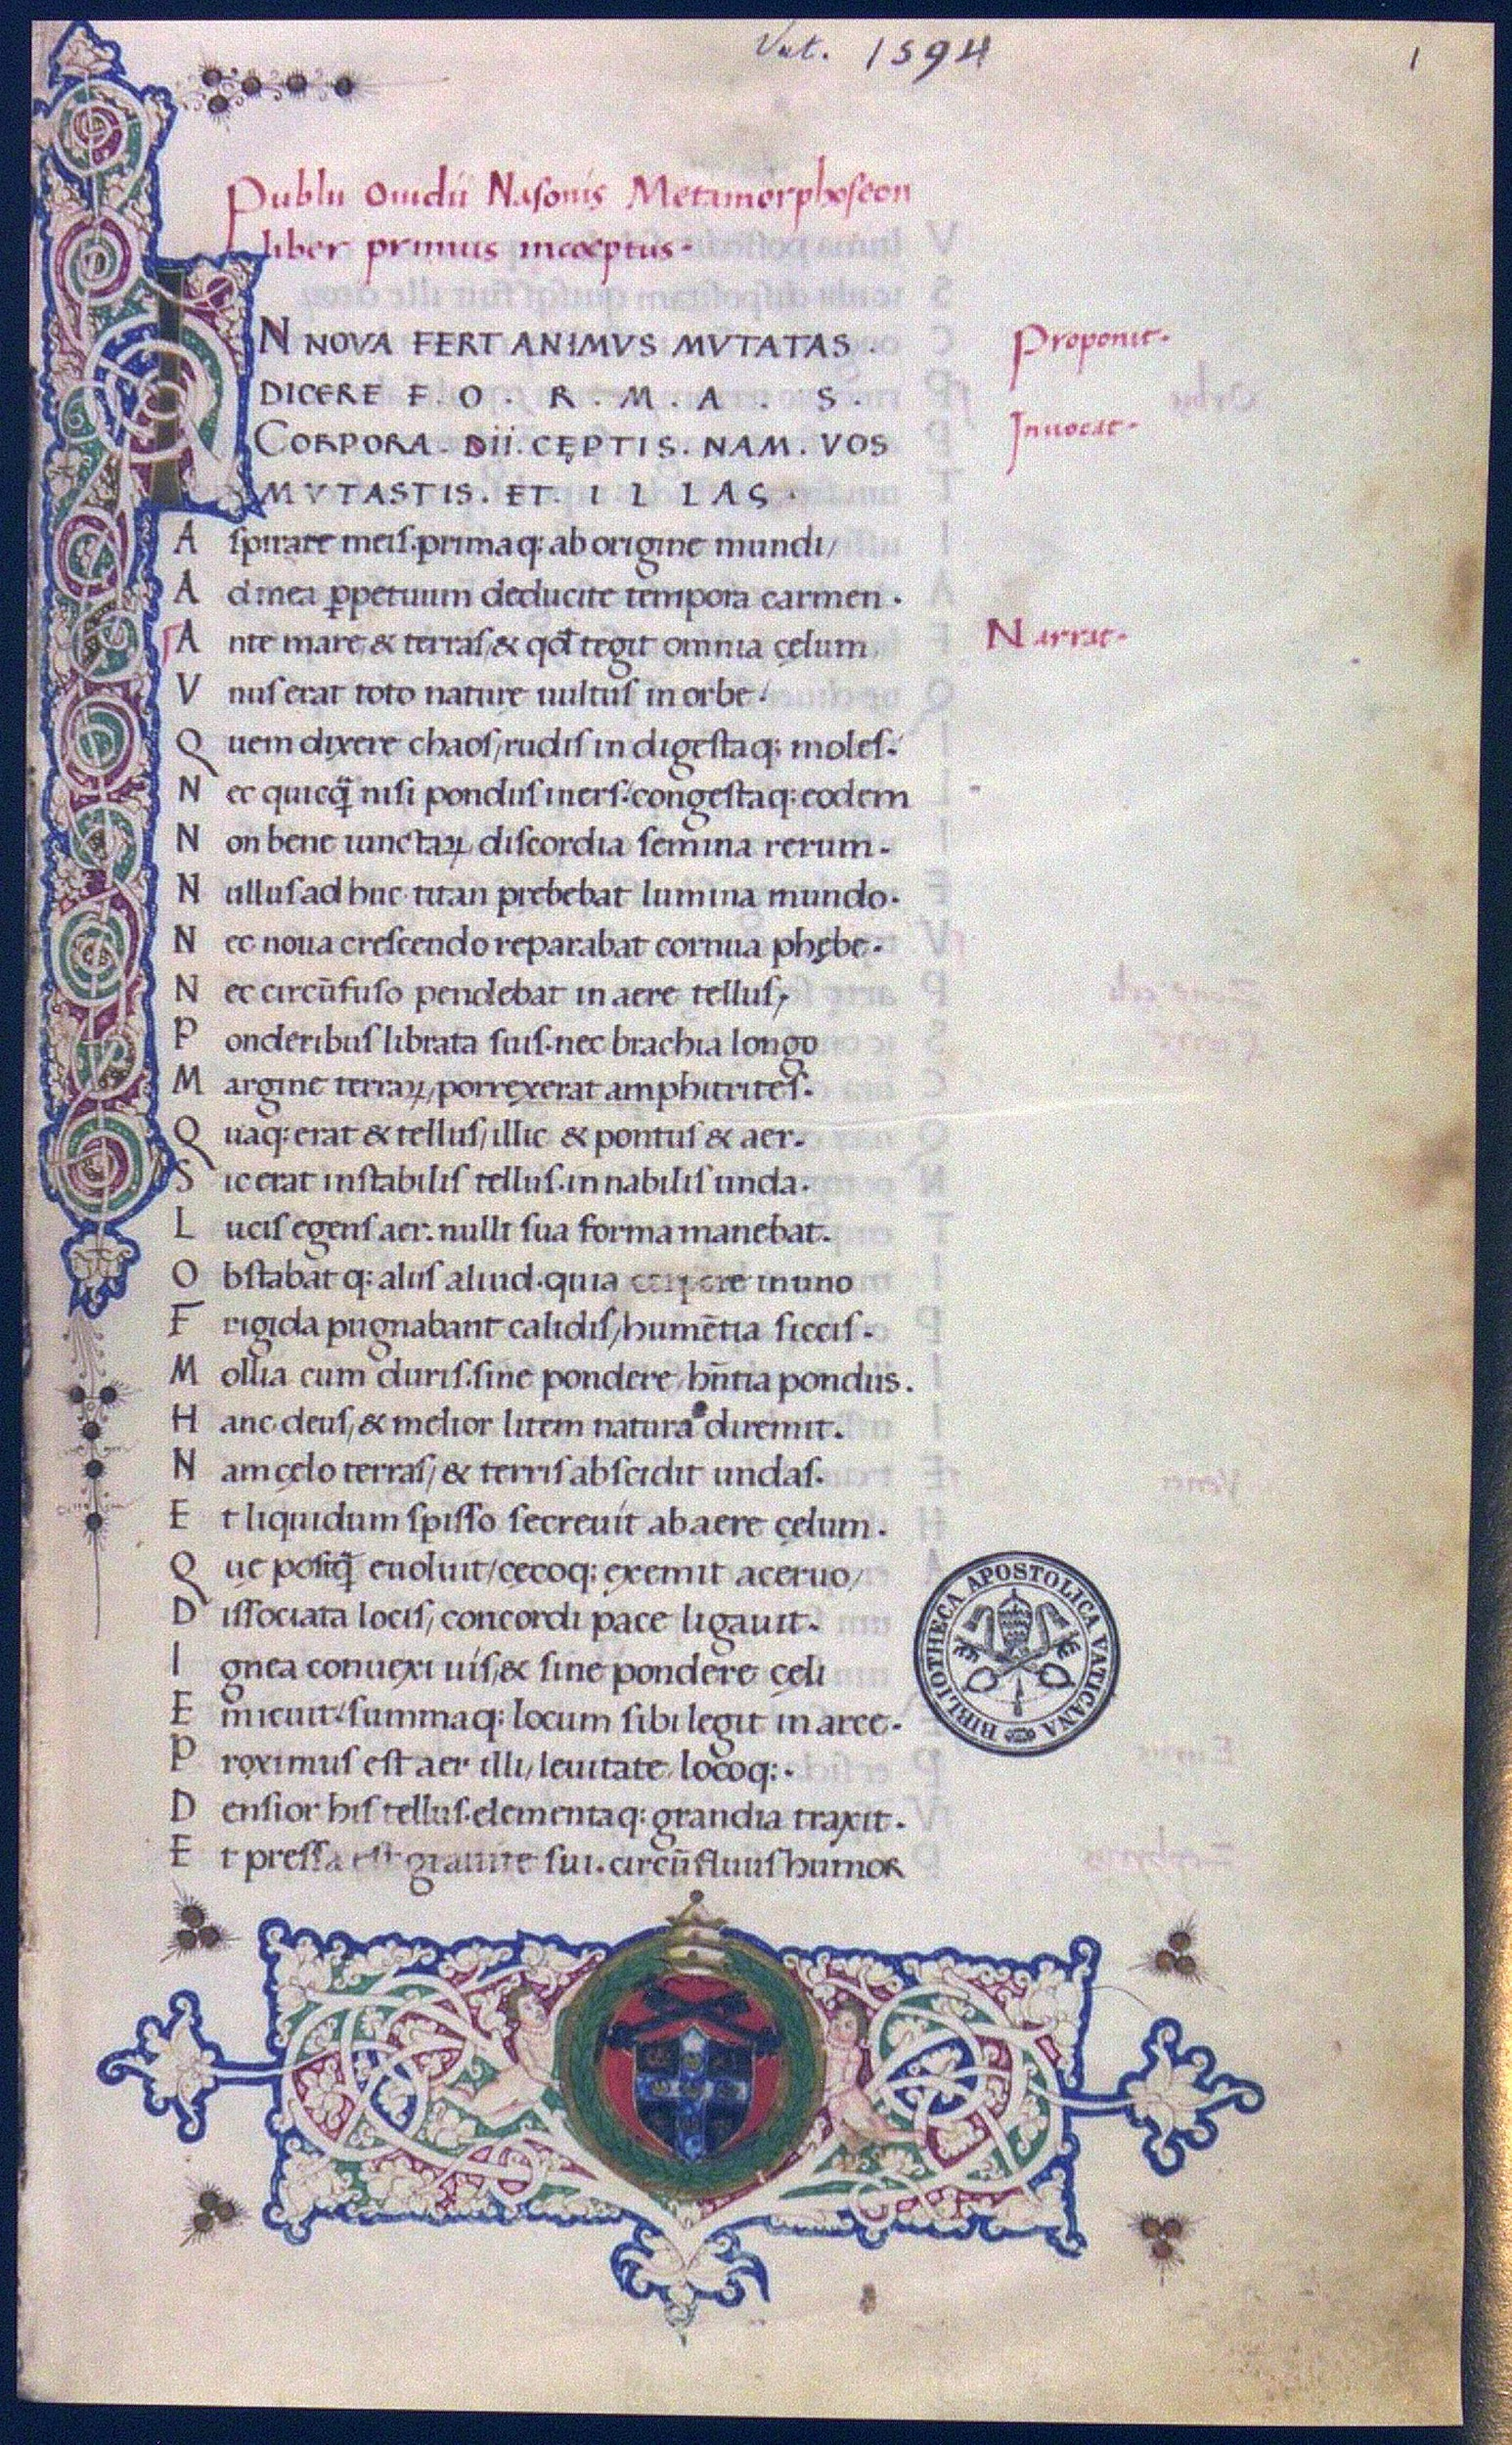 Vat. 1594
1
Publii Ouidii Nasonis Metamorphoseon
liber primus incoeptus.
IN NOVA FERT ANIMVS MVTATAS.
DICERE F. O. R. M. A. S.
CORPORA. Dii. CĘPTIS. NAM. VOS
MVTASTIS. ET. I L LAS.
Proponit.
Inuocat.
A spirate meiſ. primaq: ab origine mundi/
A d mea ꝑpetuum deducite tempora carmen.
A nte mare, & terraſ, & qd̄ tegit omnia cęlum
Narrat.
V nuſ erat toto nature uultuſ in orbe.
Q uem dixere chaoſ, rudiſ in digeſtaq; moleſ.
N ec quicq̄ niſi ponduſ inerſ. congeſtaq: eodem
N on bene iunctaꝝ diſcordia ſemina rerum.
N ulluſ ad huc titan prebebat lumina mundo.
N ec noua creſcendo reparabat cornua phębe.
N ec circūfuſo pendebat in aere telluſ,
P onderibuſ librata ſuiſ. nec brachia longo
M argine terraꝝ, porrexerat amphitriteſ.
Q uaq: erat & telluſ, illic & pontuſ & aer.
S ic erat inſtabiliſ telluſ. in nabiliſ unda.
L uciſ egenſ aer. nulli ſua forma manebat.
O bſtabat q: aliiſ aliud. quia corpore in uno
F rigida pugnabant calidiſ, humētia ſicciſ.
M ollia cum duriſ. ſine pondere hn̄tia pondus.
H anc deuſ, & melior litem natura diremit.
N am cęlo terraſ, & terriſ abſcidit undaſ.
E t liquidum ſpiſſo ſecreuit ab aere cęlum.
Q ue poſtq̄ euoluit, cęcoq: exemit aceruo,
D iſſociata lociſ, concordi pace ligauit.
I gnea conuexi uiſ, & ſine pondere cęli
E micuit. ſummaq: locum ſibi legit in arce.
P roximuſ eſt aer illi, leuitate, locoq:.
D enſior hiſ telluſ. elementaq: grandia traxit.
E t preſſa eſt grauite ſui. circūfluuſ humor
BIBLIOTHECA APOSTOLICA VATICANA